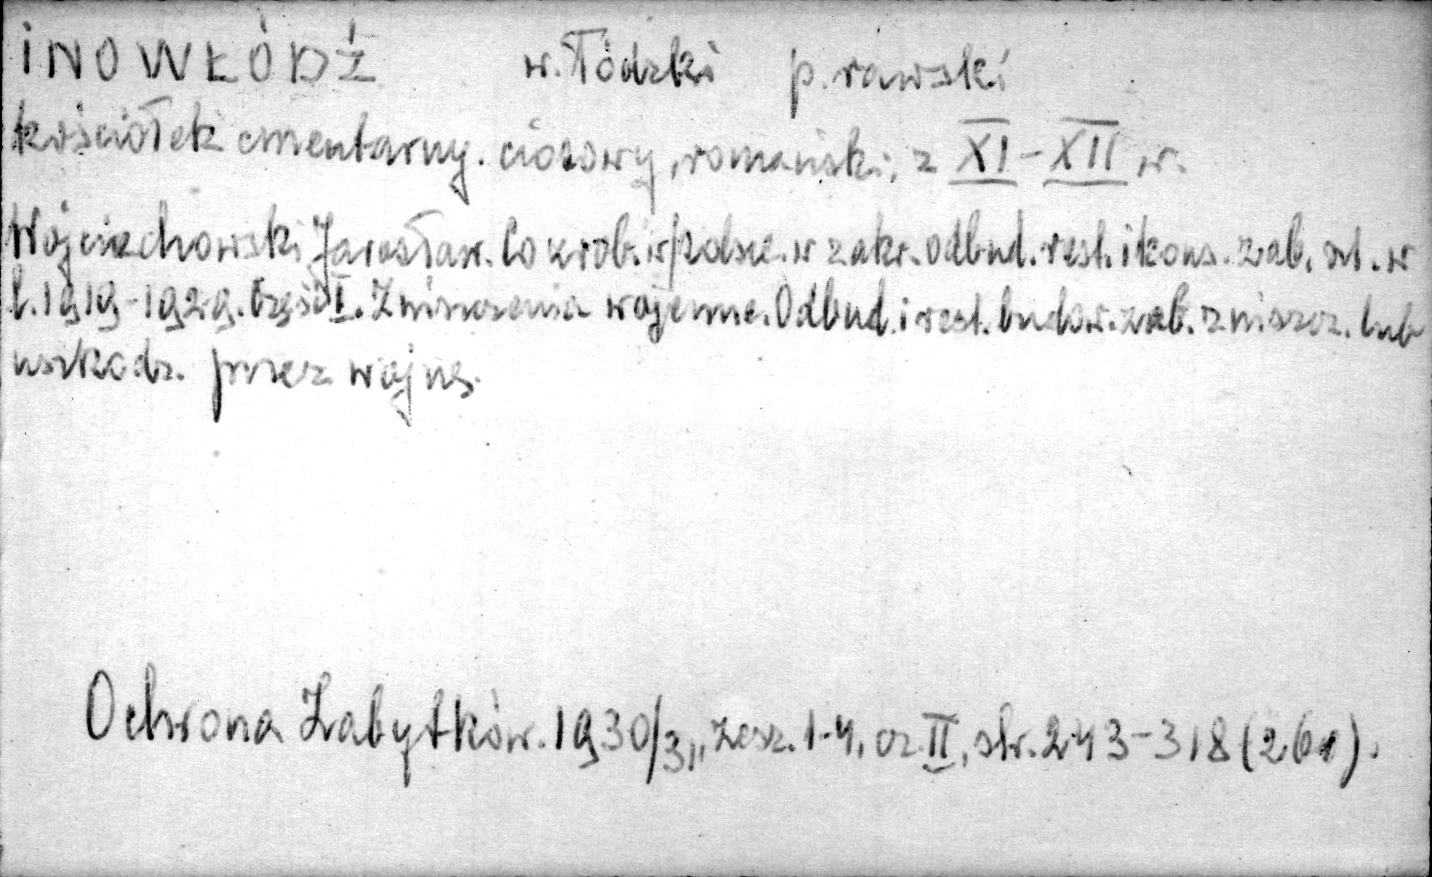 INOWŁÓDŹ w. łódzki p. rawski
kościółek cmentarny. ciosowy, romański, z XI-XII w.
Wojciechowski Jarosław. Co zrob. w Polsce. w zakr. odbud. rest. i kons. zab. szt. w
l. 1919-1929. Część I. Zniszczenia wojenne. Odbud. i rest. budow. zab. zniszcz. lub
uszkodz. przez wojnę.
Ochrona Zabytków. 1930/31, zesz. 1-4, cz. II, str. 243-318 (261).